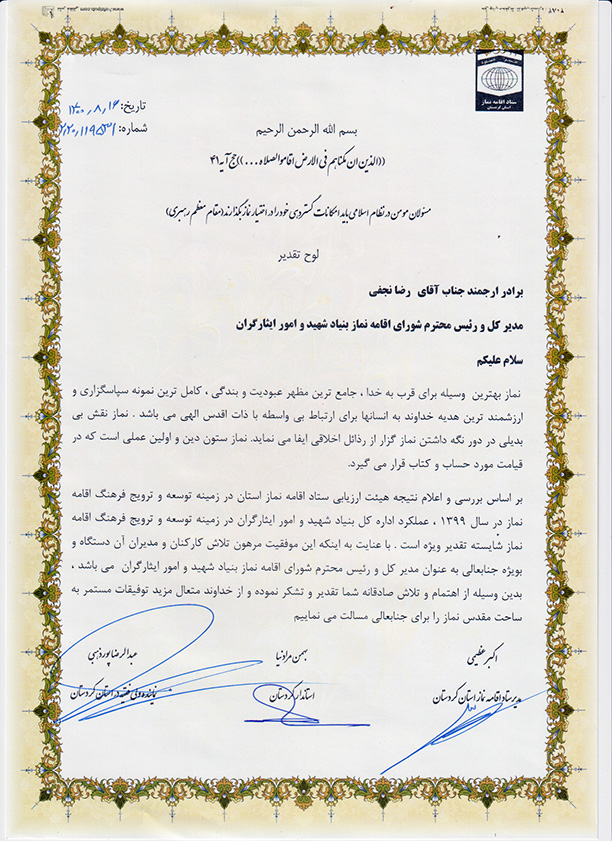 ستاد اقامه نماز
استان کردستان
تاریخ: ۱۴۰۰٫۸٫۱۶
شماره:
بسم الله الرحمن الرحیم
((الذین ان مکناهم فی الارض اقاموالصلاه ...))حج آیه ۴۱
مسئولان مومن در نظام اسلامی باید امکانات گسترده ی خود را در اختیار نماز بگذارند(مقام معظم رهبری)
لوح تقدیر
برادر ارجمند جناب آقای رضا نجفی
مدیر کل و رئیس محترم شورای اقامه نماز بنیاد شهید و امور ایثارگران
سلام علیکم
نماز بهترین وسیله برای قرب به خدا ، جامع ترین مظهر عبودیت و بندگی ، کامل ترین نمونه سپاسگزاری و
ارزشمند ترین هدیه خداوند به انسانها برای ارتباط بی واسطه با ذات اقدس الهی می باشد . نماز نقش بی
بدیلی در دور نگه داشتن نماز گزار از رذائل اخلاقی ایفا می نماید. نماز ستون دین و اولین عملی است که در
قیامت مورد حساب و کتاب قرار می گیرد.
بر اساس بررسی و اعلام نتیجه هیئت ارزیابی ستاد اقامه نماز استان در زمینه توسعه و ترویج فرهنگ اقامه
نماز در سال ۱۳۹۹ ، عملکرد اداره کل بنیاد شهید و امور ایثارگران در زمینه توسعه و ترویج فرهنگ اقامه
نماز شایسته تقدیر ویژه است . با عنایت به اینکه این موفقیت مرهون تلاش کارکنان و مدیران آن دستگاه و
بویژه جنابعالی به عنوان مدیر کل و رئیس محترم شورای اقامه نماز بنیاد شهید و امور ایثارگران می باشد ،
بدین وسیله از اهتمام و تلاش صادقانه شما تقدیر و تشکر نموده و از خداوند متعال مزید توفیقات مستمر به
ساحت مقدس نماز را برای جنابعالی مسالت می نماییم
اکبر عظیمی
مدیر ستاد اقامه نماز استان کردستان
بهمن مرادنیا
استاندار کردستان
عبدالرضا پورذهبی
نماینده ولی فقیه در استان کردستان